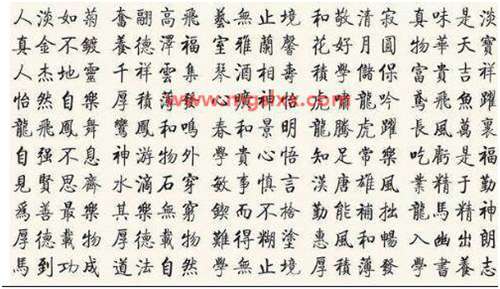 人淡如菊 奮翮高飛 藝無止境 和敬清寂 真味是淡
真金不鍍 養德澤福 室雅蘭馨 花好月圓 物華天寶
人杰地靈 千祥雲集 琴酒相壽 積學儲保 富貴吉祥
怡然自樂 厚積薄發 心曠神怡 龍吟 鳶飛魚躍
龍飛鳳舞 鸞鳳和鳴 春和景明 龍騰虎躍 長風萬裏
自强不息 神游物外 學貴心悟 知足常樂 吃虧是福
見賢思齊 水滴石穿 敏事慎言 漢唐雄風 業精于勤
爲善最樂 其樂無窮 鍥而不捨 勤能補拙 龍馬精神
厚德載物 厚德載物 難得糊塗 惠風和暢 入幽出朗
馬到功成 道法自然 學無止境 厚積薄發 學書養志